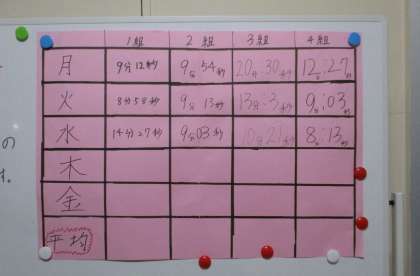 1組 2組 3組 4組
月 9分12秒 9分54秒 20分:30秒 12分:27秒
火 8分58秒 9分13秒 13分:3秒 9分:03秒
水 14分27秒 9分03秒 10分21秒 8分:13秒
木
金
平均
の
す。